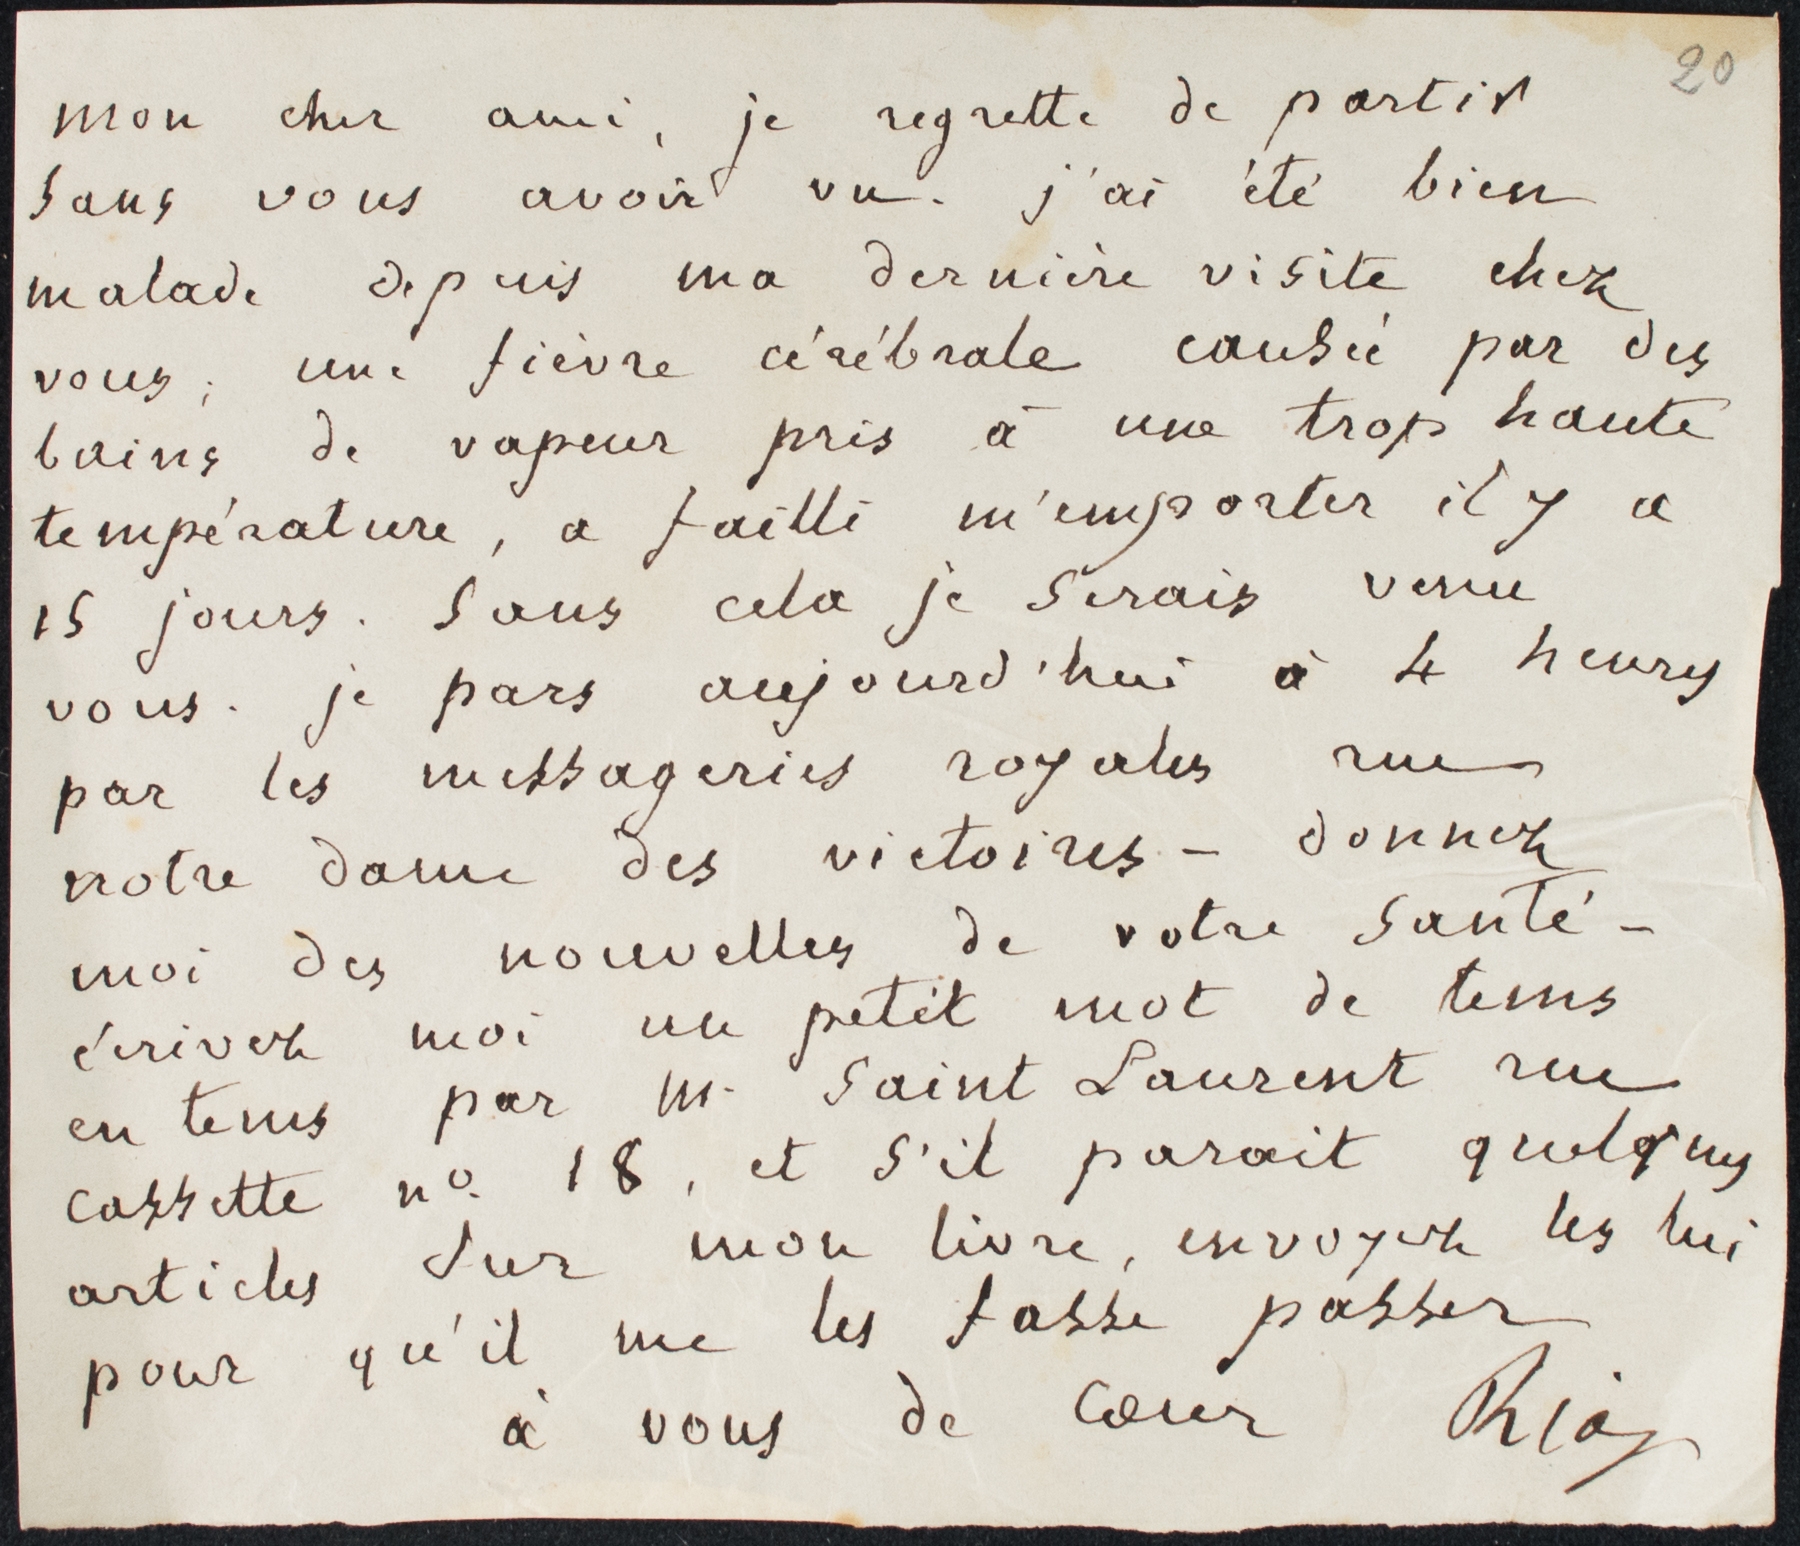 20
mon cher ami, je regrette de partir
sans vous avoir vu. j'ai été bien
malade depuis ma dernière visite chez
vous; une fièvre cérébrale causée par des
bains de vapeur pris à une trop haute
température, a failli m'emporter il y a
15 jours. sans cela je serais venu
vous. je pars aujourd'hui à 4 heures
par les messageries royales rue
notre dame des victoires - donnez
moi des nouvelles de votre santé -
écrivez moi un petit mot de tems
en tems par m. Saint Laurent rue
cassette n° 18, et s'il parait quelques
articles sur mon livre, envoyez les lui
pour qu'il me les fasse passer
à vous de cœur